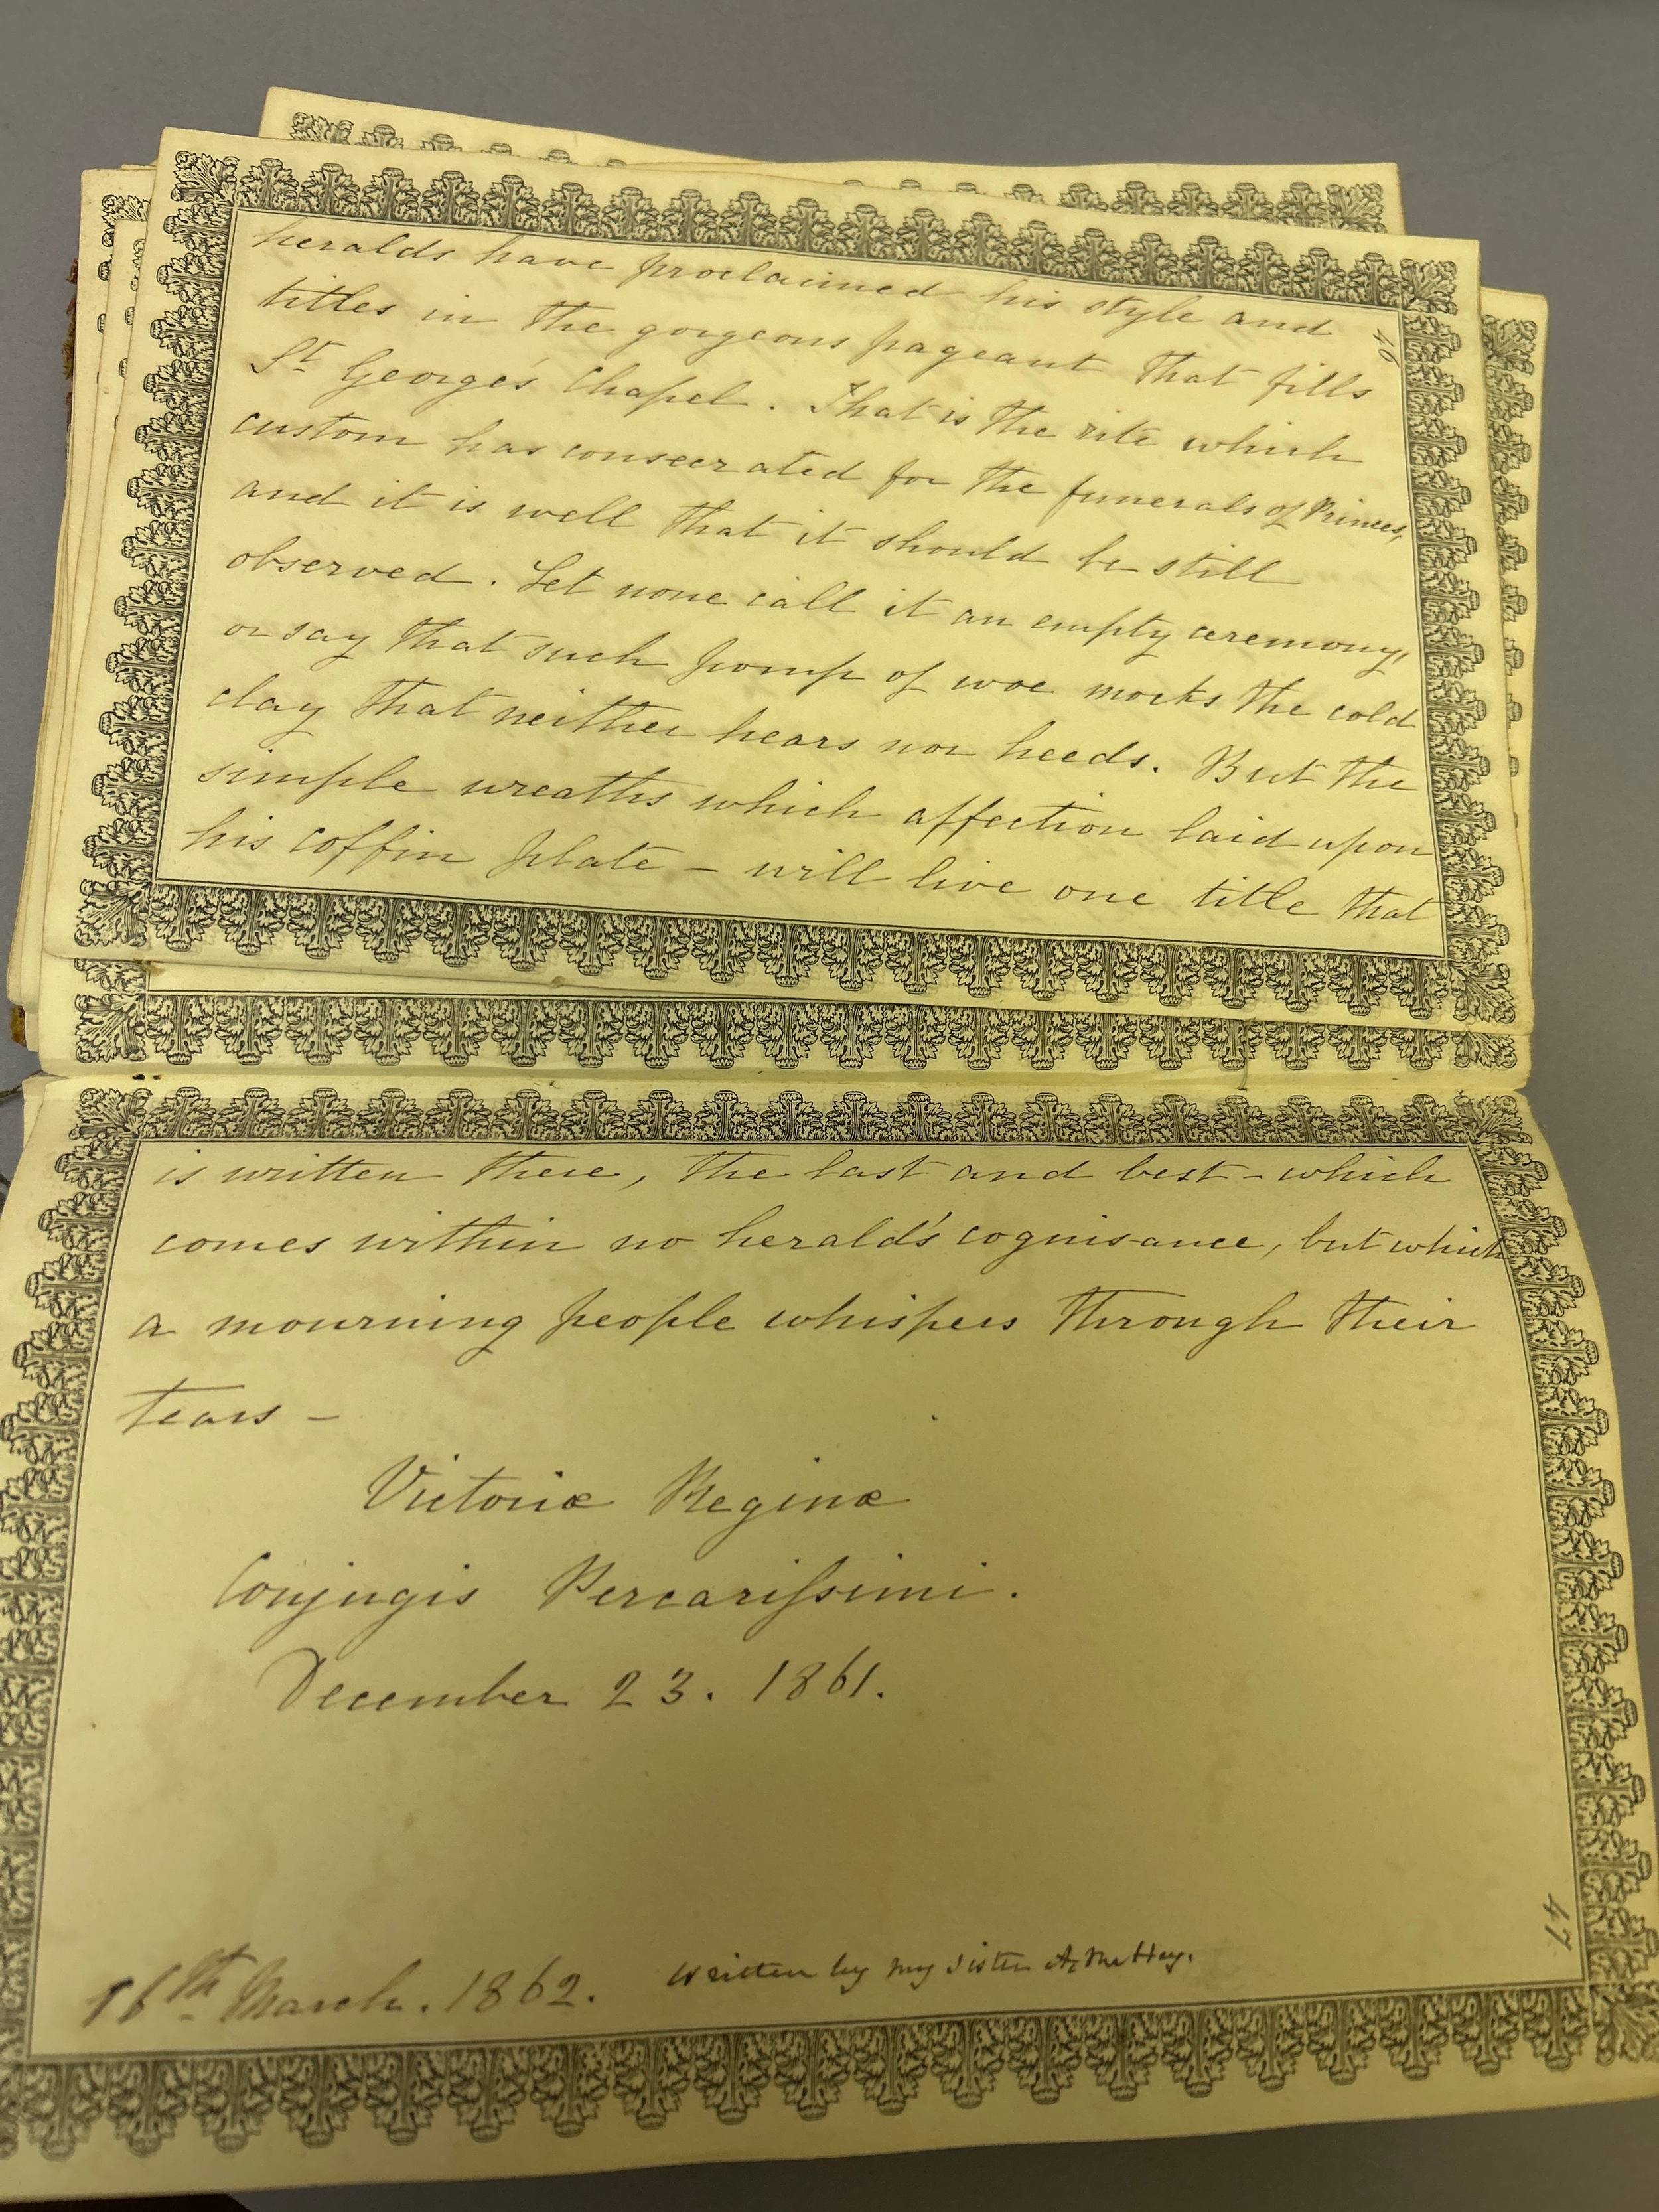 heralds have proclaimed his style and
titles in the gorgeous pageant that fills
St George's Chapel. That is the rite which
custom has consecrated for the funerals of Princes,
and it is well that it should be still
observed. Let none call it an empty ceremony,
or say that such pomp of woe mocks the cold
clay that neither hears nor heeds. But the
simple wreaths which affection laid upon
his coffin plate - will live one title that
46
is written there, the last and best - which
comes within no herald's cognisance, but which
a mourning people whispers through their
tears -
Victoriæ Reginæ
Conjugis Percarifsimi.
December 23. 1861.
16th March. 1862. written by my sister
47